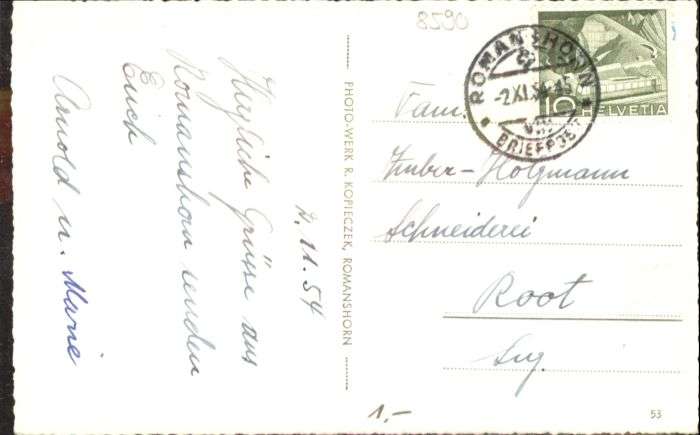 8590
2.11.54
Herzliche Grüsse aus
Romanshorn senden
Euch
Arnold u. Marie
PHOTO-WERK R. KOPIECZEK, ROMANSHORN
ROMANSHORN
-2.XI.54
BRIEFPOST
10 HELVETIA
Fam.
Huber-Holzmann
Schneiderei
Root
Luz.
1.-
53